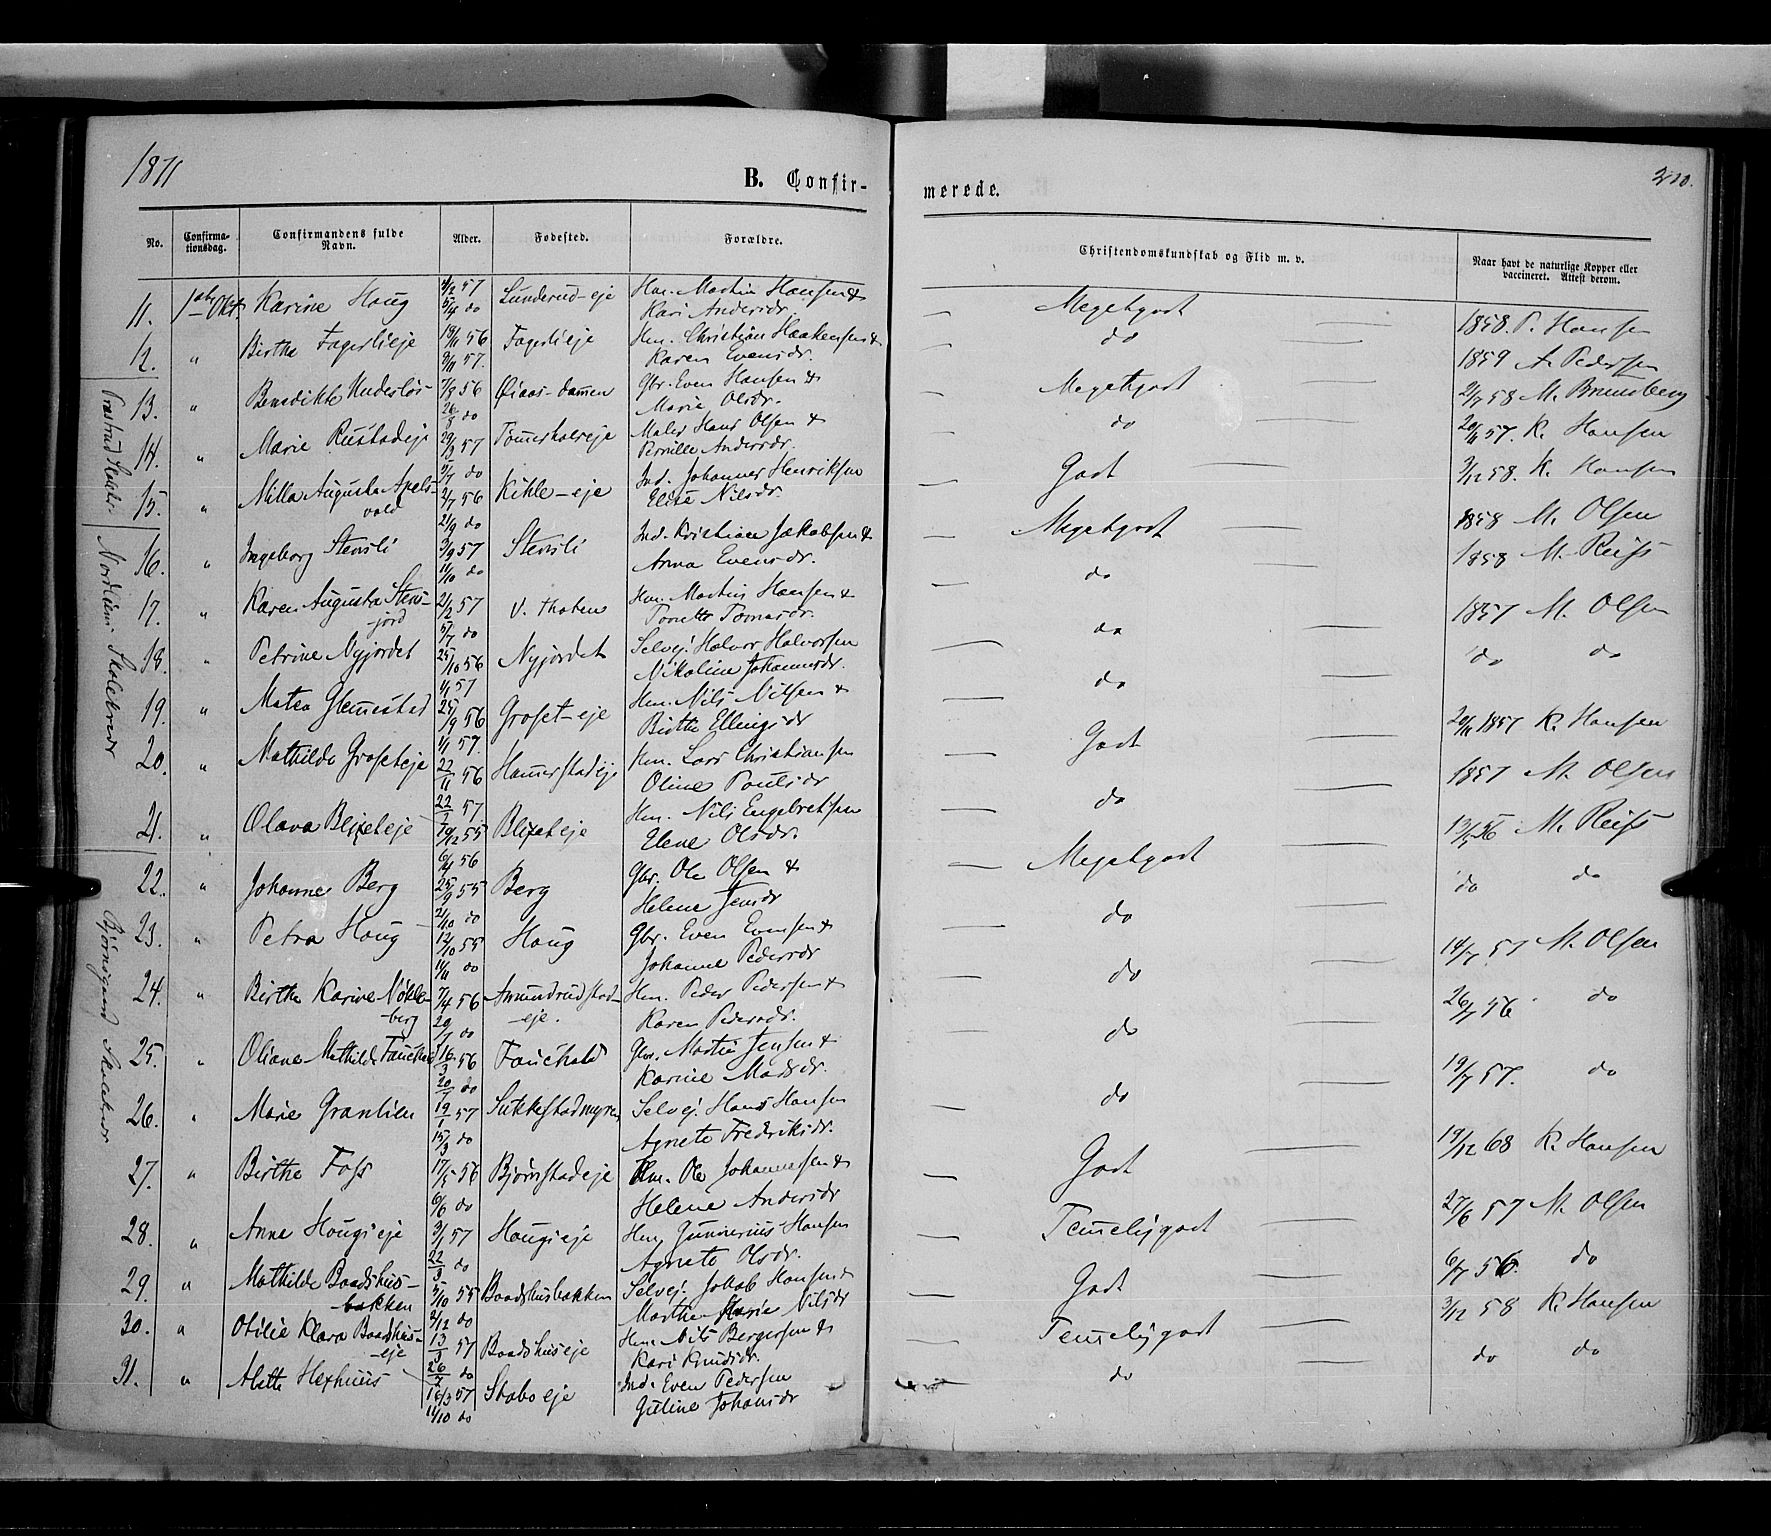 1871
B. Confir-
merede.
210.
No. Confirma-tionsdag. Confirmandens fulde Navn. Alder. Fødested. Forældre. Christendomskundskab og Flid m. v. Naar havt de naturlige Kopper eller vaccineret. Attest derom.
11. 1ste Okt. Karine Haug 57 5/4 do Lunderud-eje Hm. Martin Hansen & Kari Andersdr. Megetgodt 1858. P. Hansen
12. " Birthe Fagerlieje 19/11 56 9/11 57. Fagerlieje Hm. Christian Haakensen & Karen Evensdr. do 1859 A. Pedersen
13. " Benedikte Undeslös 7/8 56 26/8 do Øiaas-dammen Gbr. Even Hansen & Marie Olsdr. Megetgodt 2/7 58 M. Brunsberg
14. " Marie Rustadeje 29/3 57 5/7 do Tömerholseje Maler Hans Olsen & Pernille Andersdr. do 20/11 57. K. Hansen
15. " Milla Augusta Apels-vold 2/7 56 21/9 do Kihle-eje Ind. Johannes Henriksen Elise Nilsdr. Godt 3/12 58. K. Hansen
16. " Ingeborg Stensli 3/9 57 11/10 do Stensli Ind. Kristian Jakobsen & Anna Evensdr. Megetgodt 1858 M. Olsen
17. " Karen Augusta Stens-jord 21/2 57 5/7 do V. Thoten Hm. Martin Hansen & Tonette Tomasdr. do 1858 M. Reiss
18. " Petrine Nyjordet 25/10 56 1/1 57 Nyjordet Selvej. Halvor Halvorsen Nikoline Johannesdr. do 1857 M. Olsen
19. " Matea Glemestad 25/9 56 1/1 57. Groset-eje Hm. Nils Nilsen & Birthe Ellingsdr do do do
20. " Mathilde Groseteje 22/11 56 22/1 57 Hamerstadeje Hm. Lars Christiansen Oline Poulsdr Godt 20/11 1857 K. Hansen
21. " Olava Blixeteje 29/12 55 6/4 56 Blixeteje Hm. Nils Engebretsen Elene Olsdr. do 1857 M. Olsen
22. " Johanne Berg 25/9 55 21/10 do Berg Gbr. Ole Olsen & Helene Jensdr Megetgodt 13/7 56 M. Reiss
23. " Petra Haug 12/10 55 11/11 do Haug Gbr. Even Evensen & Johanne Pedersdr do do do
24. " Birthe Karine Nökle-berg 7/4 56 20/7 do Amundrudstad-eje. Hm. Peder Pedersen & Karen Pedersdr. do 14/7 57 M. Olsen
25. " Oliane Mathilde Fauchald 16/3 56 20/7 do Fauchald Gbr. Martin Jensen & Karine Madsdr. do 26/7 56 do
26. " Marie Granlien 19/1 57 15/3 do Sukkestadmyren Selvej. Hans Hansen Agnete Fredriksdr. do 19/7 57. do
27. " Birthe Foss 17/5 56 6/6 do Bjørnstadeje Hm. Ole Johannesen & Helene Andersdr Godt 19/12 68 K. Hansen
28. " Anne Haugseje 3/1 57 22/3 do Haugseje Hm. Gunnerius Hansen Agnete Olsdr. Temeligodt 27/6 57 M. Olsen
29. " Mathilde Baadshus-bakken 5/10 55 2/12 do Baadshusbakken Selvej. Jakob Hansen & Marthe Marie Nilsdr Godt 6/7 56. do
30. " Otilie Klara Baadhus-eje 13/3 57 26/7 do Baadshuseje Hm. Nils Bergersen & Kari Knudsdr. Temeligodt 3/12 58 K. Hansen
31. " Alette Hexhuus 16/3 57 11/10 do Staboeje Ind. Even Pedersen Juline Johansdr do do do
Nordliens Skolekreds
Bjönsgaard Skolekreds